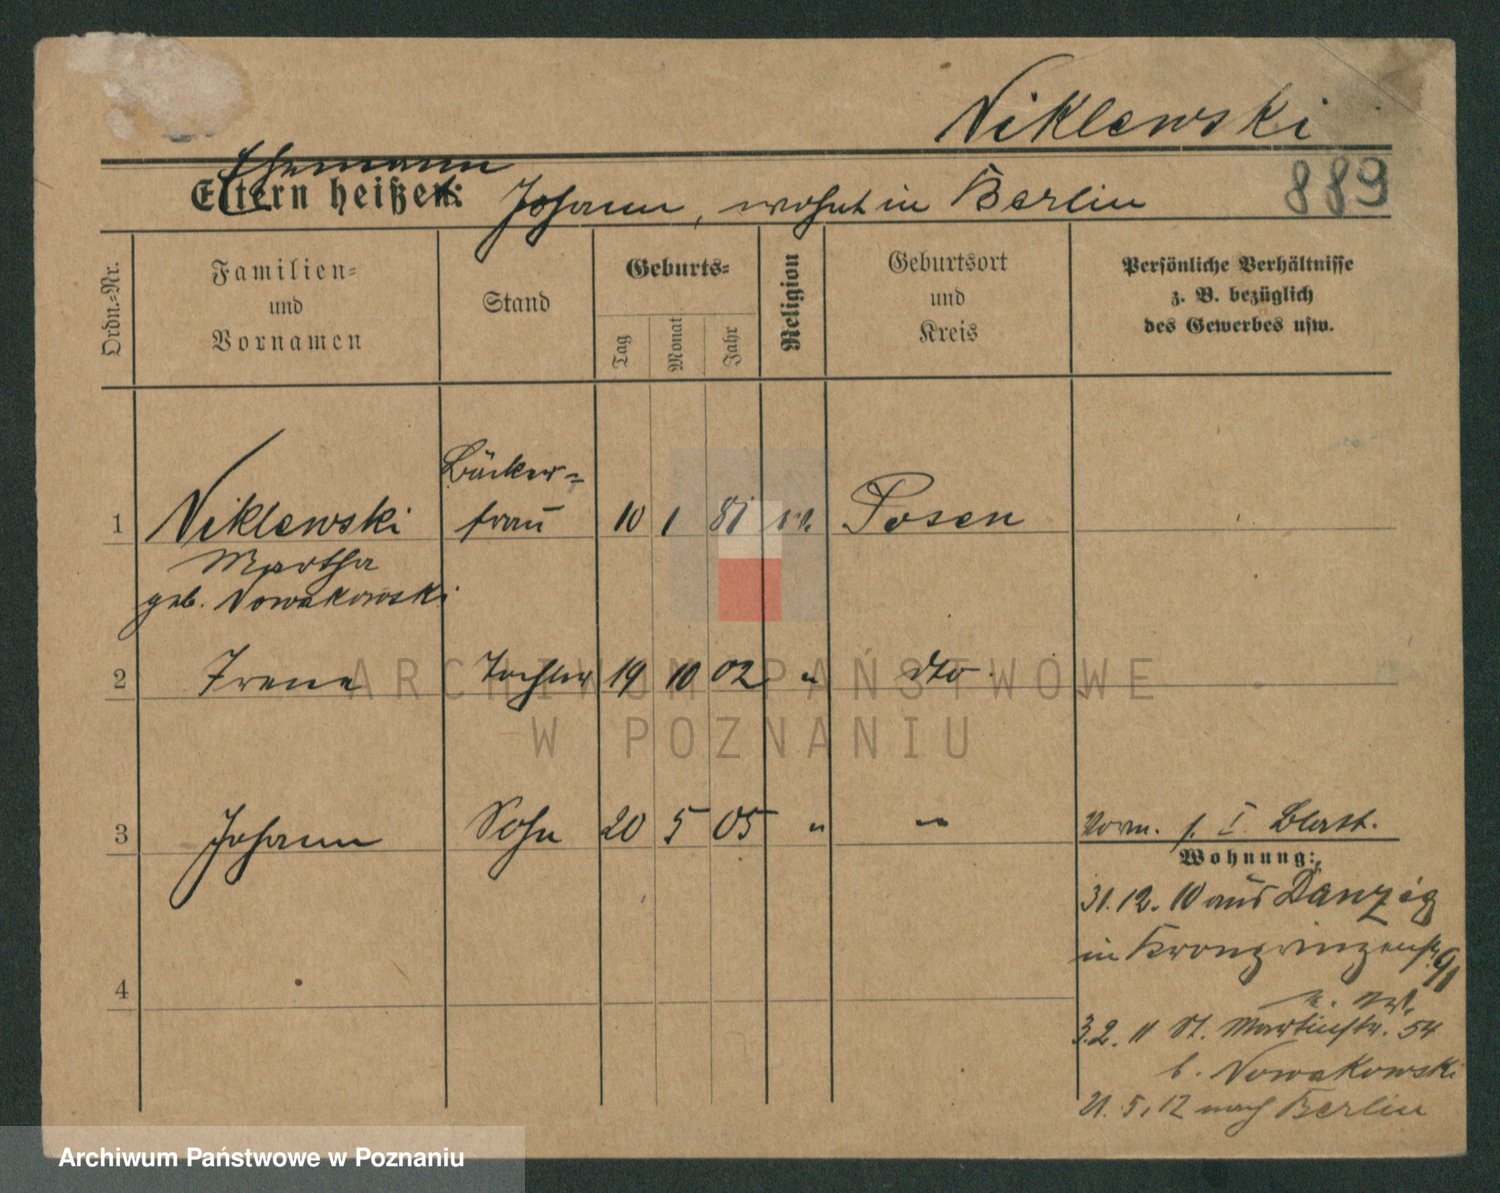 Niklewski
889
Ehemann
Eltern heißen: Johann, wohnt in Berlin
Ordn.-Nr.
Familien-
und
Vornamen
Stand
Geburts-
Tag
Monat
Jahr
Religion
Geburtsort
und
Kreis
Persönliche Verhältnisse
z. B. bezüglich
des Gewerbes usw.
Bäcker-
1 Niklewski frau 10 1 81 Posen
Martha
geb. Nowakowski
2 Irene Tochter 19 10 02 " dto.
3 Johann Sohn 20 5 05 " "
Vorm. f. I. Blatt.
Wohnung:
31.12.10 aus Danzig
in Kronprinzenstr. 91
3.2.11 St. Martinstr. 54
b. Nowakowski
21.5.12 nach Berlin
4
ARCHIWUM PAŃSTWOWE
W POZNANIU
Archiwum Państwowe w Poznaniu